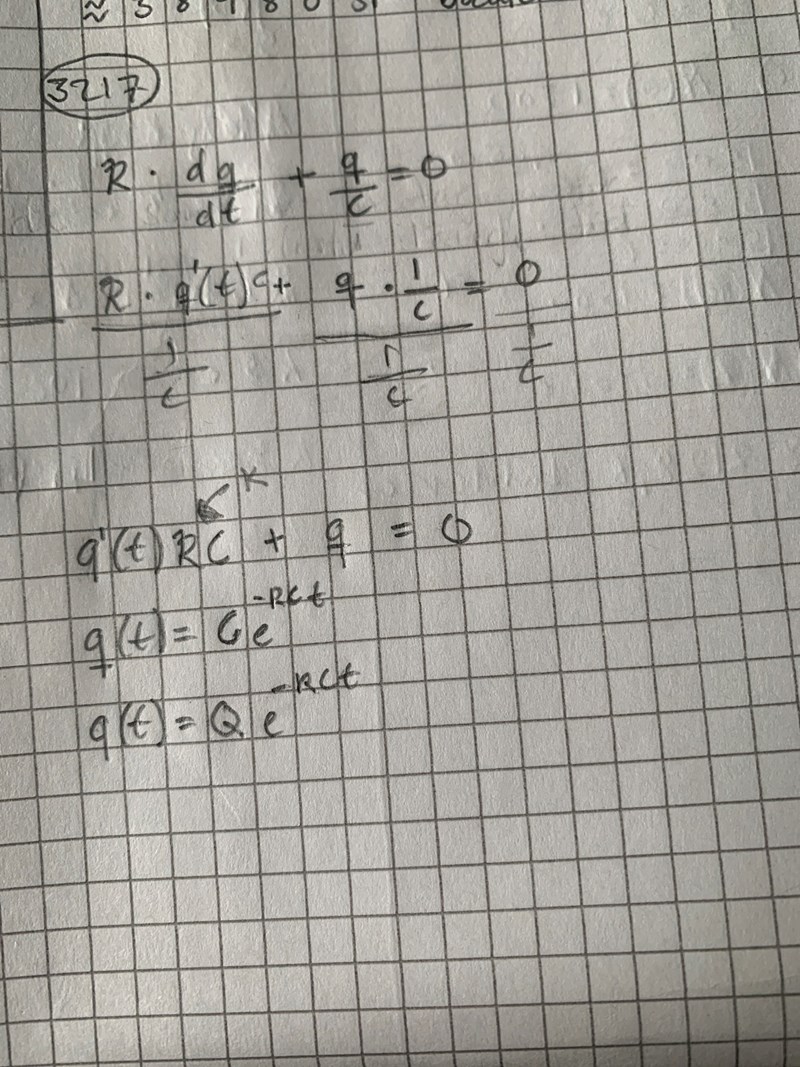 ≈ 3
3217
R · dq/dt + q/C = 0
R · q'(t) + q · 1/C = 0
1/C 1/C 1/C
K
q'(t) RC + q = 0
q(t) = C e^-RCt
q(t) = Q e^-RCt